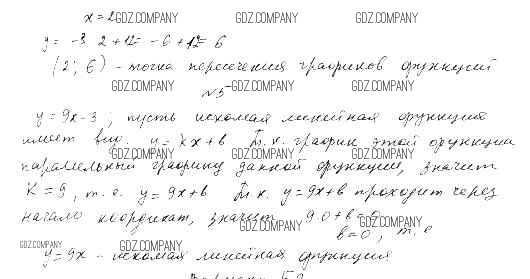 x = 2 GDZ.COMPANY GDZ.COMPANY GDZ.COMPANY
y = -3·2+12 = -6+12 = 6
(2; 6) - точка пересечения графиков функций
GDZ.COMPANY GDZ.COMPANY GDZ.COMPANY
№5
y = 9x - 3; пусть искомая линейная функция
имеет вид y = kx + b Т.к. график этой функции
GDZ.COMPANY GDZ.COMPANY GDZ.COMPANY
параллельный графику данной функции, значит
K = 9, т.е. y = 9x + b Т.к. y = 9x + b проходит через
начало координат, значит 9·0 + b = 0
GDZ.COMPANY GDZ.COMPANY
b = 0, т.е
GDZ.COMPANY GDZ.COMPANY
y = 9x - искомая линейная функция